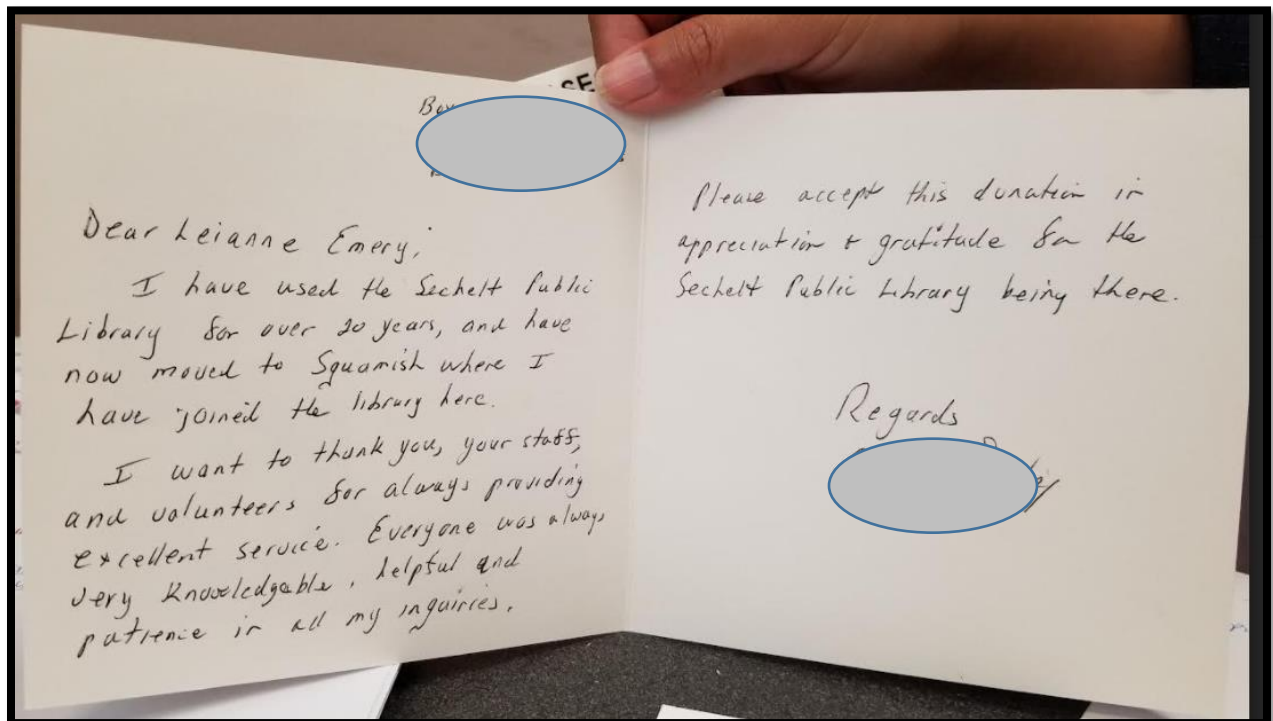 Box
Dear Leianne Emery,
I have used the Sechelt Public
Library for over 20 years, and have
now moved to Squamish where I
have joined the library here.
I want to thank you, your staff,
and volunteers for always providing
excellent service. Everyone was always
very knowledgable, helpful and
patience in all my inquiries.
Please accept this donation in
appreciation + gratitude for the
Sechelt Public Library being there.
Regards